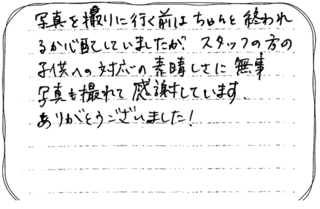 写真を撮りに行く前はちゃんと終われ
るか心配していましたが、スタッフの方の
子供への対応の素晴しさに無事
写真も撮れて感謝しています。
ありがとうございました!